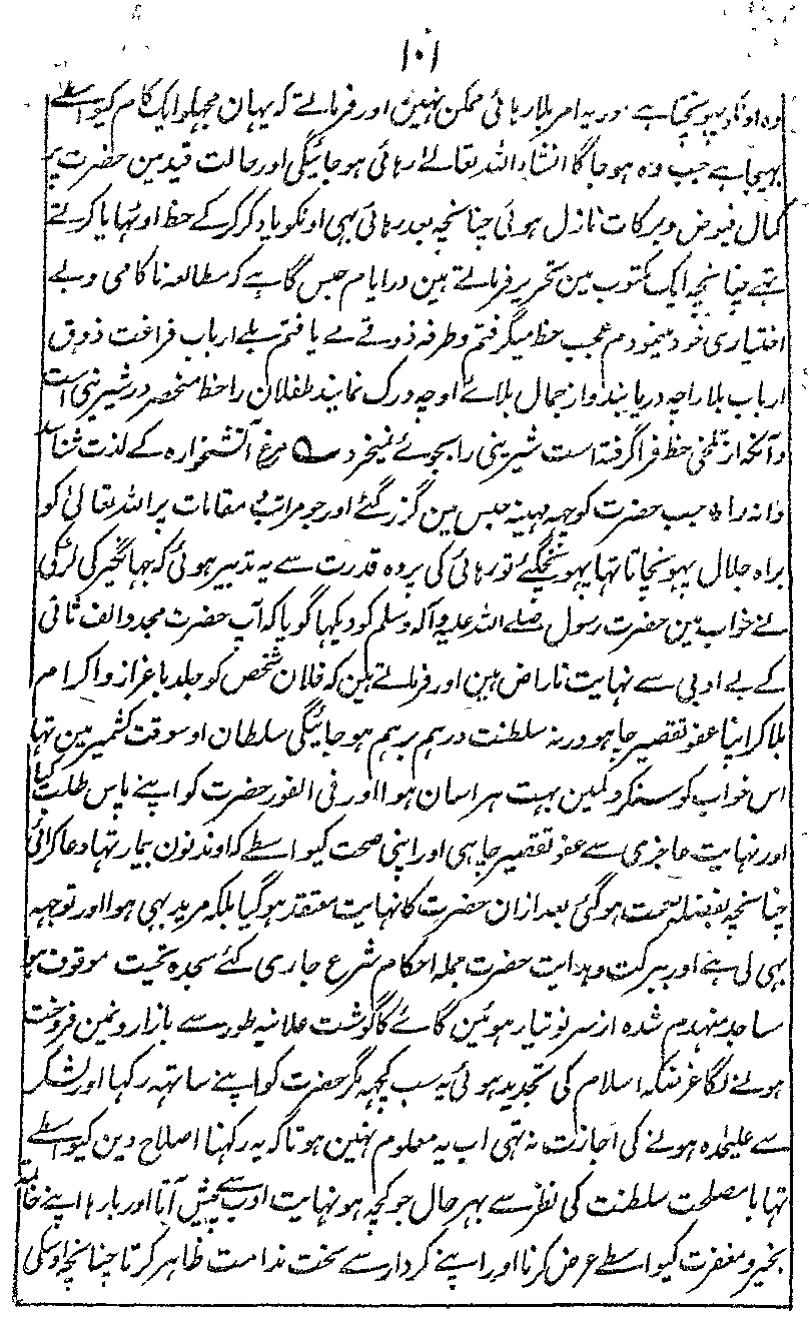 ۱۰۱
وہ اوتاد پہونچتا ہے اور یہ امر بلا رہائی ممکن نہیں اور فرماتے کہ یہان مجہکو ایک کام کیواسطے
بہیجا ہے جب وہ ہو جاگا انشاء اللہ تعالےٰ رہائی ہوجائیگی اور حالت قید مین حضرت پر
کمال فیوض و برکات نازل ہوئی چنانچہ بعد رہائی بہی اونکو یاد کرکرکے حظ اوٹہایا کرتے
تہے چنانچہ ایک مکتوب مین تحریر فرماتے ہین در ایام حبس گاہے کہ مطالعہ ناکامی و بے
اختیاری خود مینمودم عجب حظ میگرفتم و طرفہ ذوقے مے یافتم بلے ارباب فراغت ذوق
ارباب بلا را چہ دریابند و از جمال بلائے او چہ درک نمایند طفلان را حظ منحصر در شیرینی است
و آنکہ از تلخی حظ فرا گرفتہ است شیرینی را بجوئے نمیخرد ؎ مرغ آتشخوارہ کے لذت شناسد
دانہ را ٭ جب حضرت کو چہہ مہینہ حبس مین گزر گئے اور جو مراتب و مقامات پر اللہ تعالیٰ کو
براہ جلال پہونچانا تہا پہونچگئے تو رہائی کی پردہ قدرت سے یہ تدبیر ہوئی کہ جہانگیر کی لڑکی
نے خواب مین حضرت رسول صلے اللہ علیہ وآلہ وسلم کو دیکہا گویا کہ آپ حضرت مجدد الف ثانی
کے بے ادبی سے نہایت ناراض ہین اور فرماتے ہین کہ فلان شخص کو جلد باعزاز و اکرام
بلاکر اپنا عفو تقصیر چاہو ورنہ سلطنت درہم برہم ہو جائیگی سلطان اوسوقت کشمیر مین تہا
اس خواب کو سنکر دلمین بہت ہراسان ہوا اور فی الفور حضرت کو اپنے پاس طلب کیا
اور نہایت عاجزی سے عفو تقصیر چاہی اور اپنی صحت کیواسطے کہ اوندنون بیمار تہا دعا کرائی
چنانچہ بفضلہ صحت ہوگئی بعد ازان حضرت کا نہایت معتقد ہوگیا بلکہ مرید بہی ہوا اور توجہہ
بہی لی ہے اور ببرکت و ہدایت حضرت جملہ احکام شرع جاری کئے سجدہ تحیت موقوف ہوا
مساجد منہدم شدہ از سر نو تیار ہوئین گائے کا گوشت علانیہ طور سے بازارونمین فروخت
ہونے لگا غرضکہ اسلام کی تجدید ہوئی یہ سب کچہہ مگر حضرت کو اپنے ساتہہ رکہا اور لشکر
سے علیحدہ ہونے کی اجازت نہ تہی اب یہ معلوم نہین ہوتا کہ یہ رکہنا اصلاح دین کیواسطے
تہا یا مصلحت سلطنت کی نظر سے بہر حال جو کچہہ ہو نہایت ادب سے پیش آتا اور بارہا اپنے خاتمہ
بخیر و مغفرت کیواسطے عرض کرتا اور اپنے کردار سے سخت ندامت ظاہر کرتا چنانچہ اوسکی